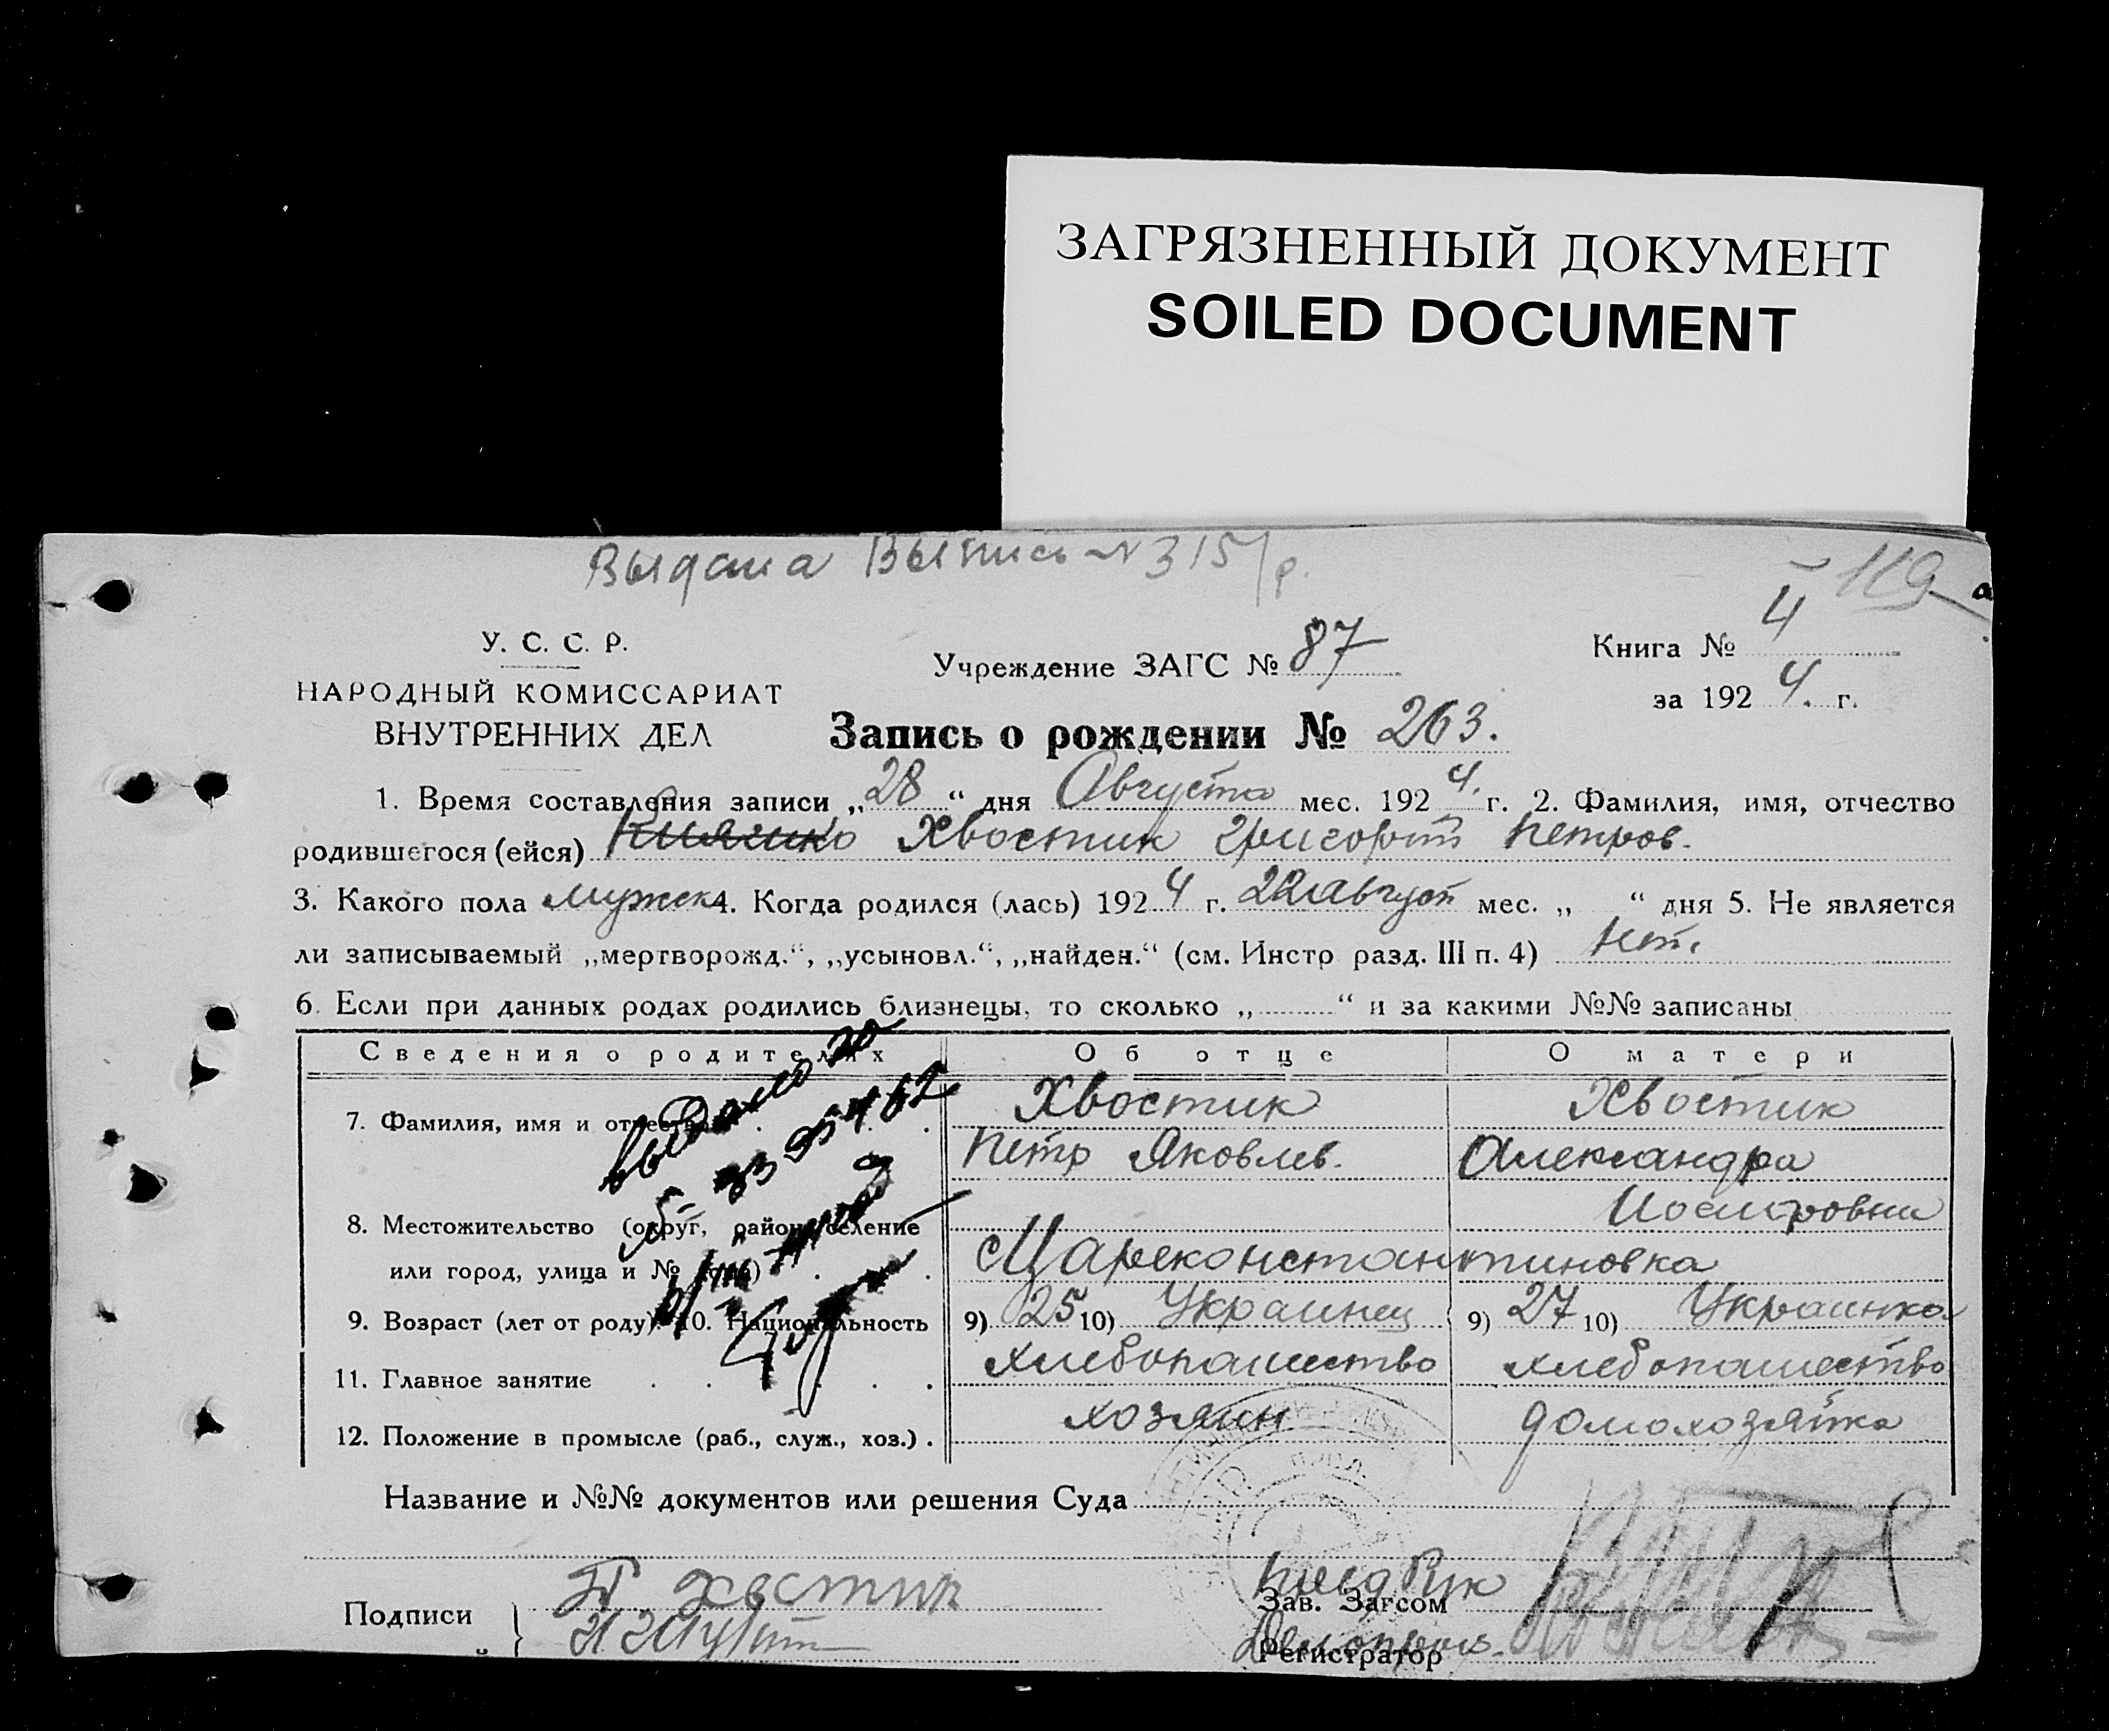 ЗАГРЯЗНЕННЫЙ ДОКУМЕНТ
SOILED DOCUMENT
Выдана Выпись № 315/р.
119 а
У. С. С. Р.
НАРОДНЫЙ КОМИССАРИАТ
ВНУТРЕННИХ ДЕЛ
Учреждение ЗАГС № 87
Книга № 4
за 1924. г.
Запись о рождении № 263.
1. Время составления записи „28“ дня Августа мес. 1924. г. 2. Фамилия, имя, отчество
родившегося (ейся) Хвостик Григорий Петров.
3. Какого пола мужск 4. Когда родился (лась) 1924 г. 22 август мес. „ “ дня 5. Не является
ли записываемый „мертворожд.“, „усыновл.“, „найден.“ (см. Инстр разд. III п. 4) Нет.
6. Если при данных родах родились близнецы, то сколько „ “ и за какими №№ записаны
Сведения о родителях Об отце О матери
7. Фамилия, имя и отчество Хвостик Хвостик
Петр Яковлев. Александра
8. Местожительство (округ, район, селение
или город, улица и № дома) с Цареконстантиновка
9. Возраст (лет от роду) 10. Национальность 9) 25 10) Украинец 9) 27 10) Украинка
11. Главное занятие хлебопашество хлебопашество
12. Положение в промысле (раб., служ., хоз.) . хозяин домохозяйка
выдано
Название и №№ документов или решения Суда
Подписи П Хвостик
Зав. Загсом
Регистратор